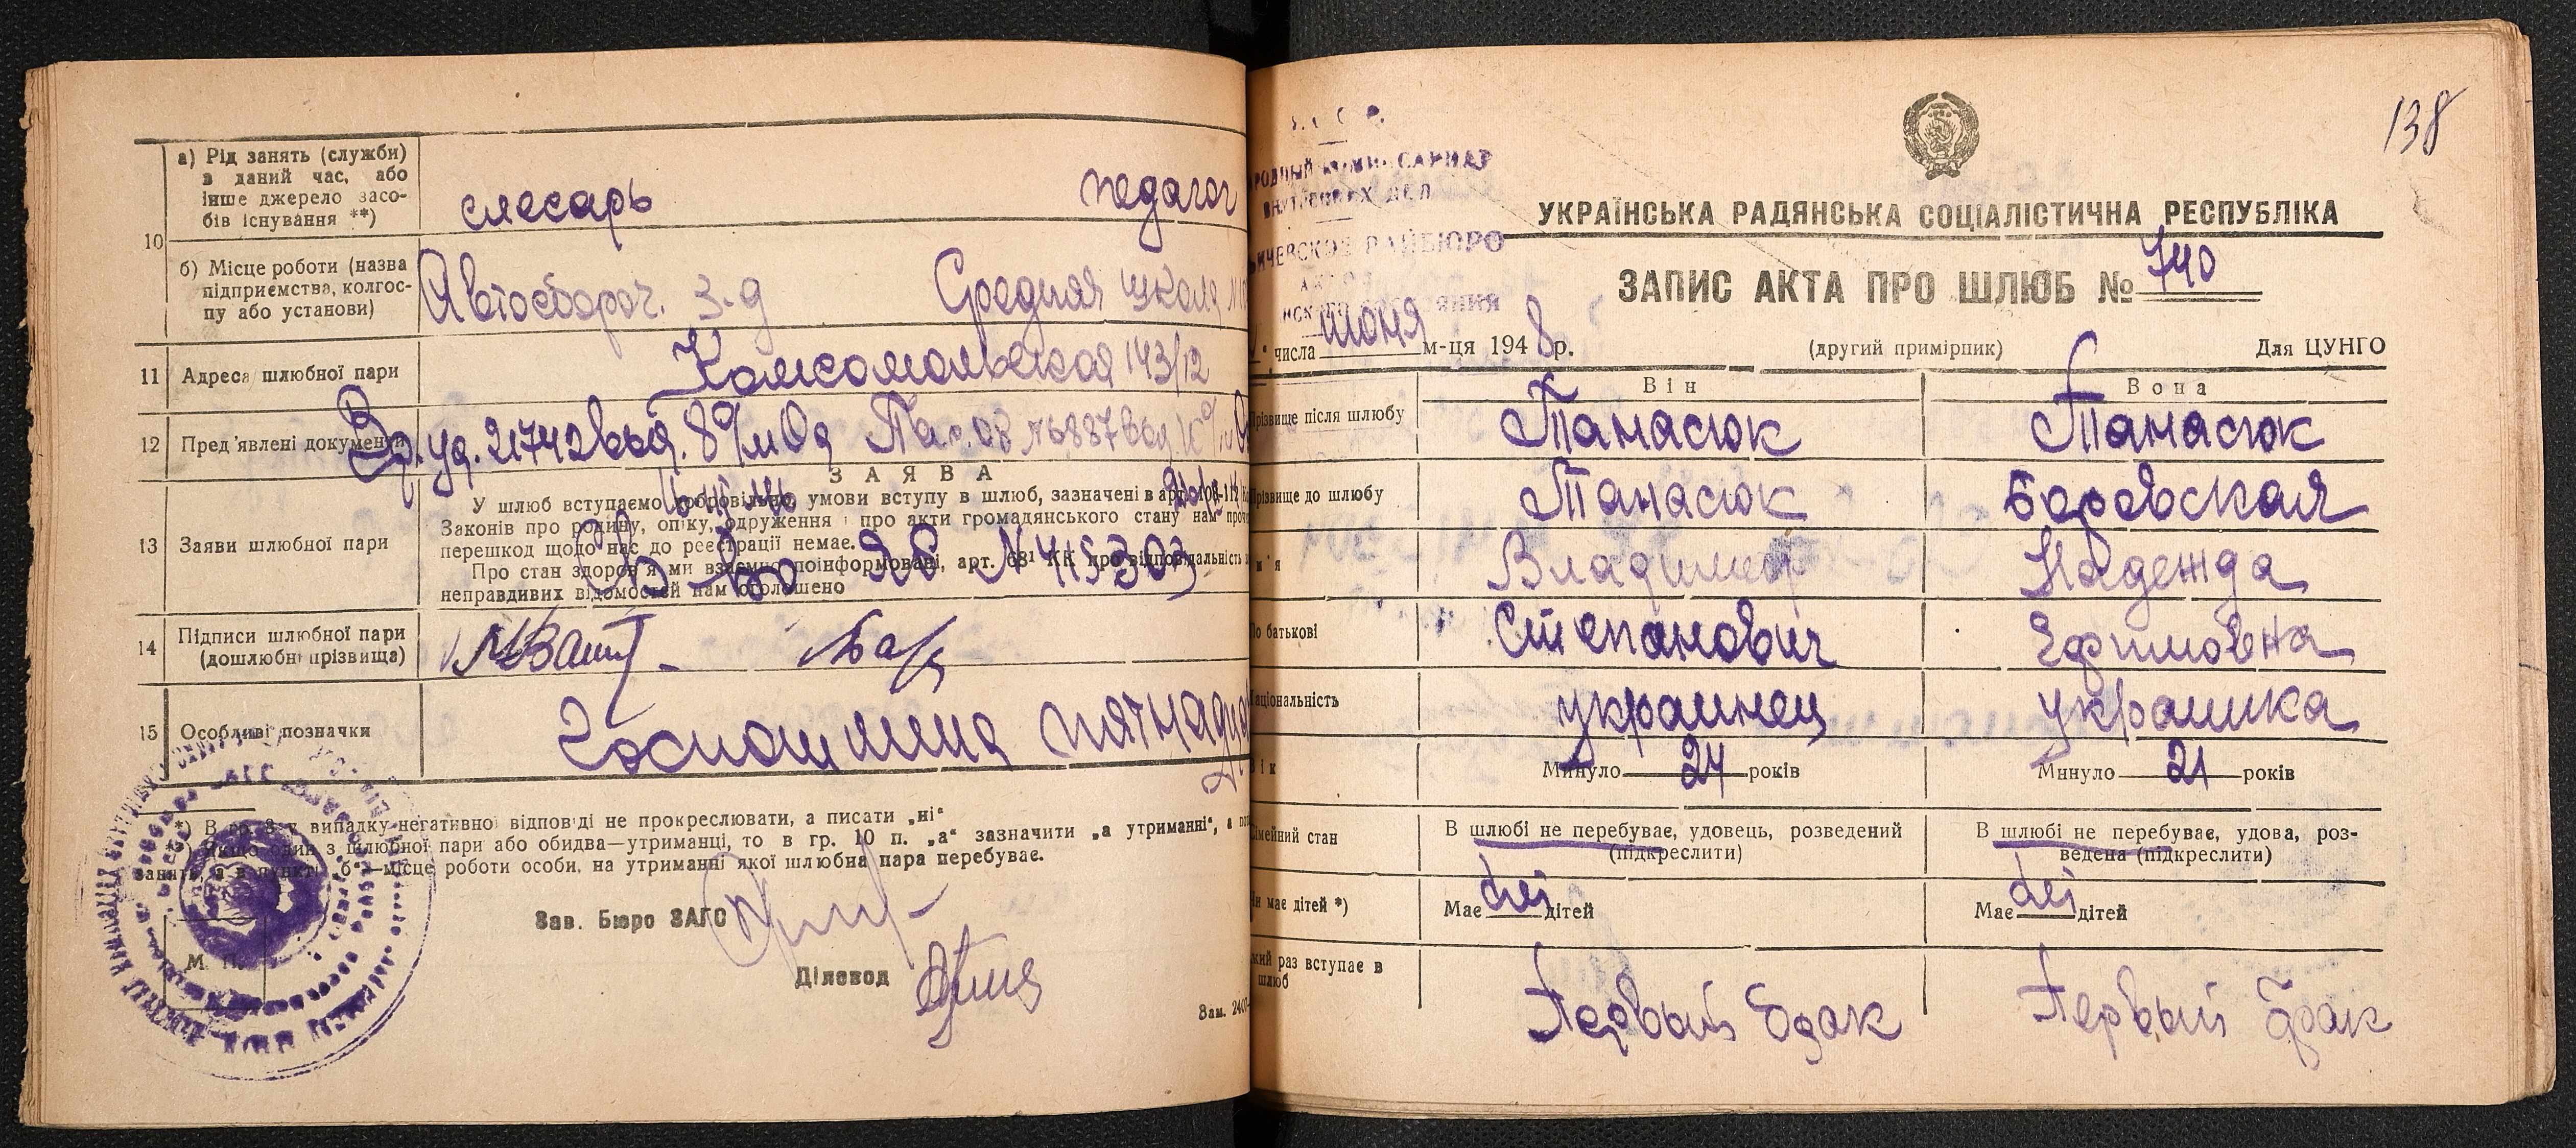 а) Рід занять (служби)
в даний час, або
інше джерело засо-
бів існування **)
слесарь
педагог
10
б) Місце роботи (назва
підприємства, колгос-
пу або установи)
Автосбороч. з-д
Средняя школа
11
Адреса шлюбної пари
Комсомольская 143/12
12
Пред'явлені документи
Вр. уд.
ЗАЯВА
13
Заяви шлюбної пари
У шлюб вступаємо добровільно, умови вступу в шлюб, зазначені в арт.
Законів про родину, опіку, одруження і про акти громадянського стану нам
перешкод щодо нас до реєстрації немає.
Про стан здоров'я ми взаємно поінформовані, арт. 68¹ КК про відповідальність
неправдивих відомостей нам оголошено
Св-во ЯБ №415303
14
Підписи шлюбної пари
(дошлюбні прізвища)
15
Особливі позначки
Госпошлина
*) В гр. 8 у випадку негативної відповіді не прокреслювати, а писати „ні“
**) Якщо один з шлюбної пари або обидва—утриманці, то в гр. 10 п. „а“ зазначити „а утриманні“, а
занять, а в пункті „б“—місце роботи особи, на утриманні якої шлюбна пара перебуває.
Зав. Бюро ЗАГС
М. П.
Діловод
Зам.
138
ВНУТРЕННИХ ДЕЛ
РАЙБЮРО
УКРАЇНСЬКА РАДЯНСЬКА СОЦІАЛІСТИЧНА РЕСПУБЛІКА
ЗАПИС АКТА ПРО ШЛЮБ № 740
числа июня м-ця 1948 р.
(другий примірник)
Для ЦУНГО
Він
Вона
Прізвище після шлюбу
Танасюк
Танасюк
Прізвище до шлюбу
Танасюк
Боровская
Владимир
Надежда
По батькові
Степанович
Ефимовна
Національність
украинец
украинка
Вік
Минуло 24 років
Минуло 21 років
Сімейний стан
В шлюбі не перебуває, удовець, розведений
(підкреслити)
В шлюбі не перебуває, удова, роз-
ведена (підкреслити)
Чи має дітей *)
Має ні дітей
Має ні дітей
раз вступає в
шлюб
Первый брак
Первый брак